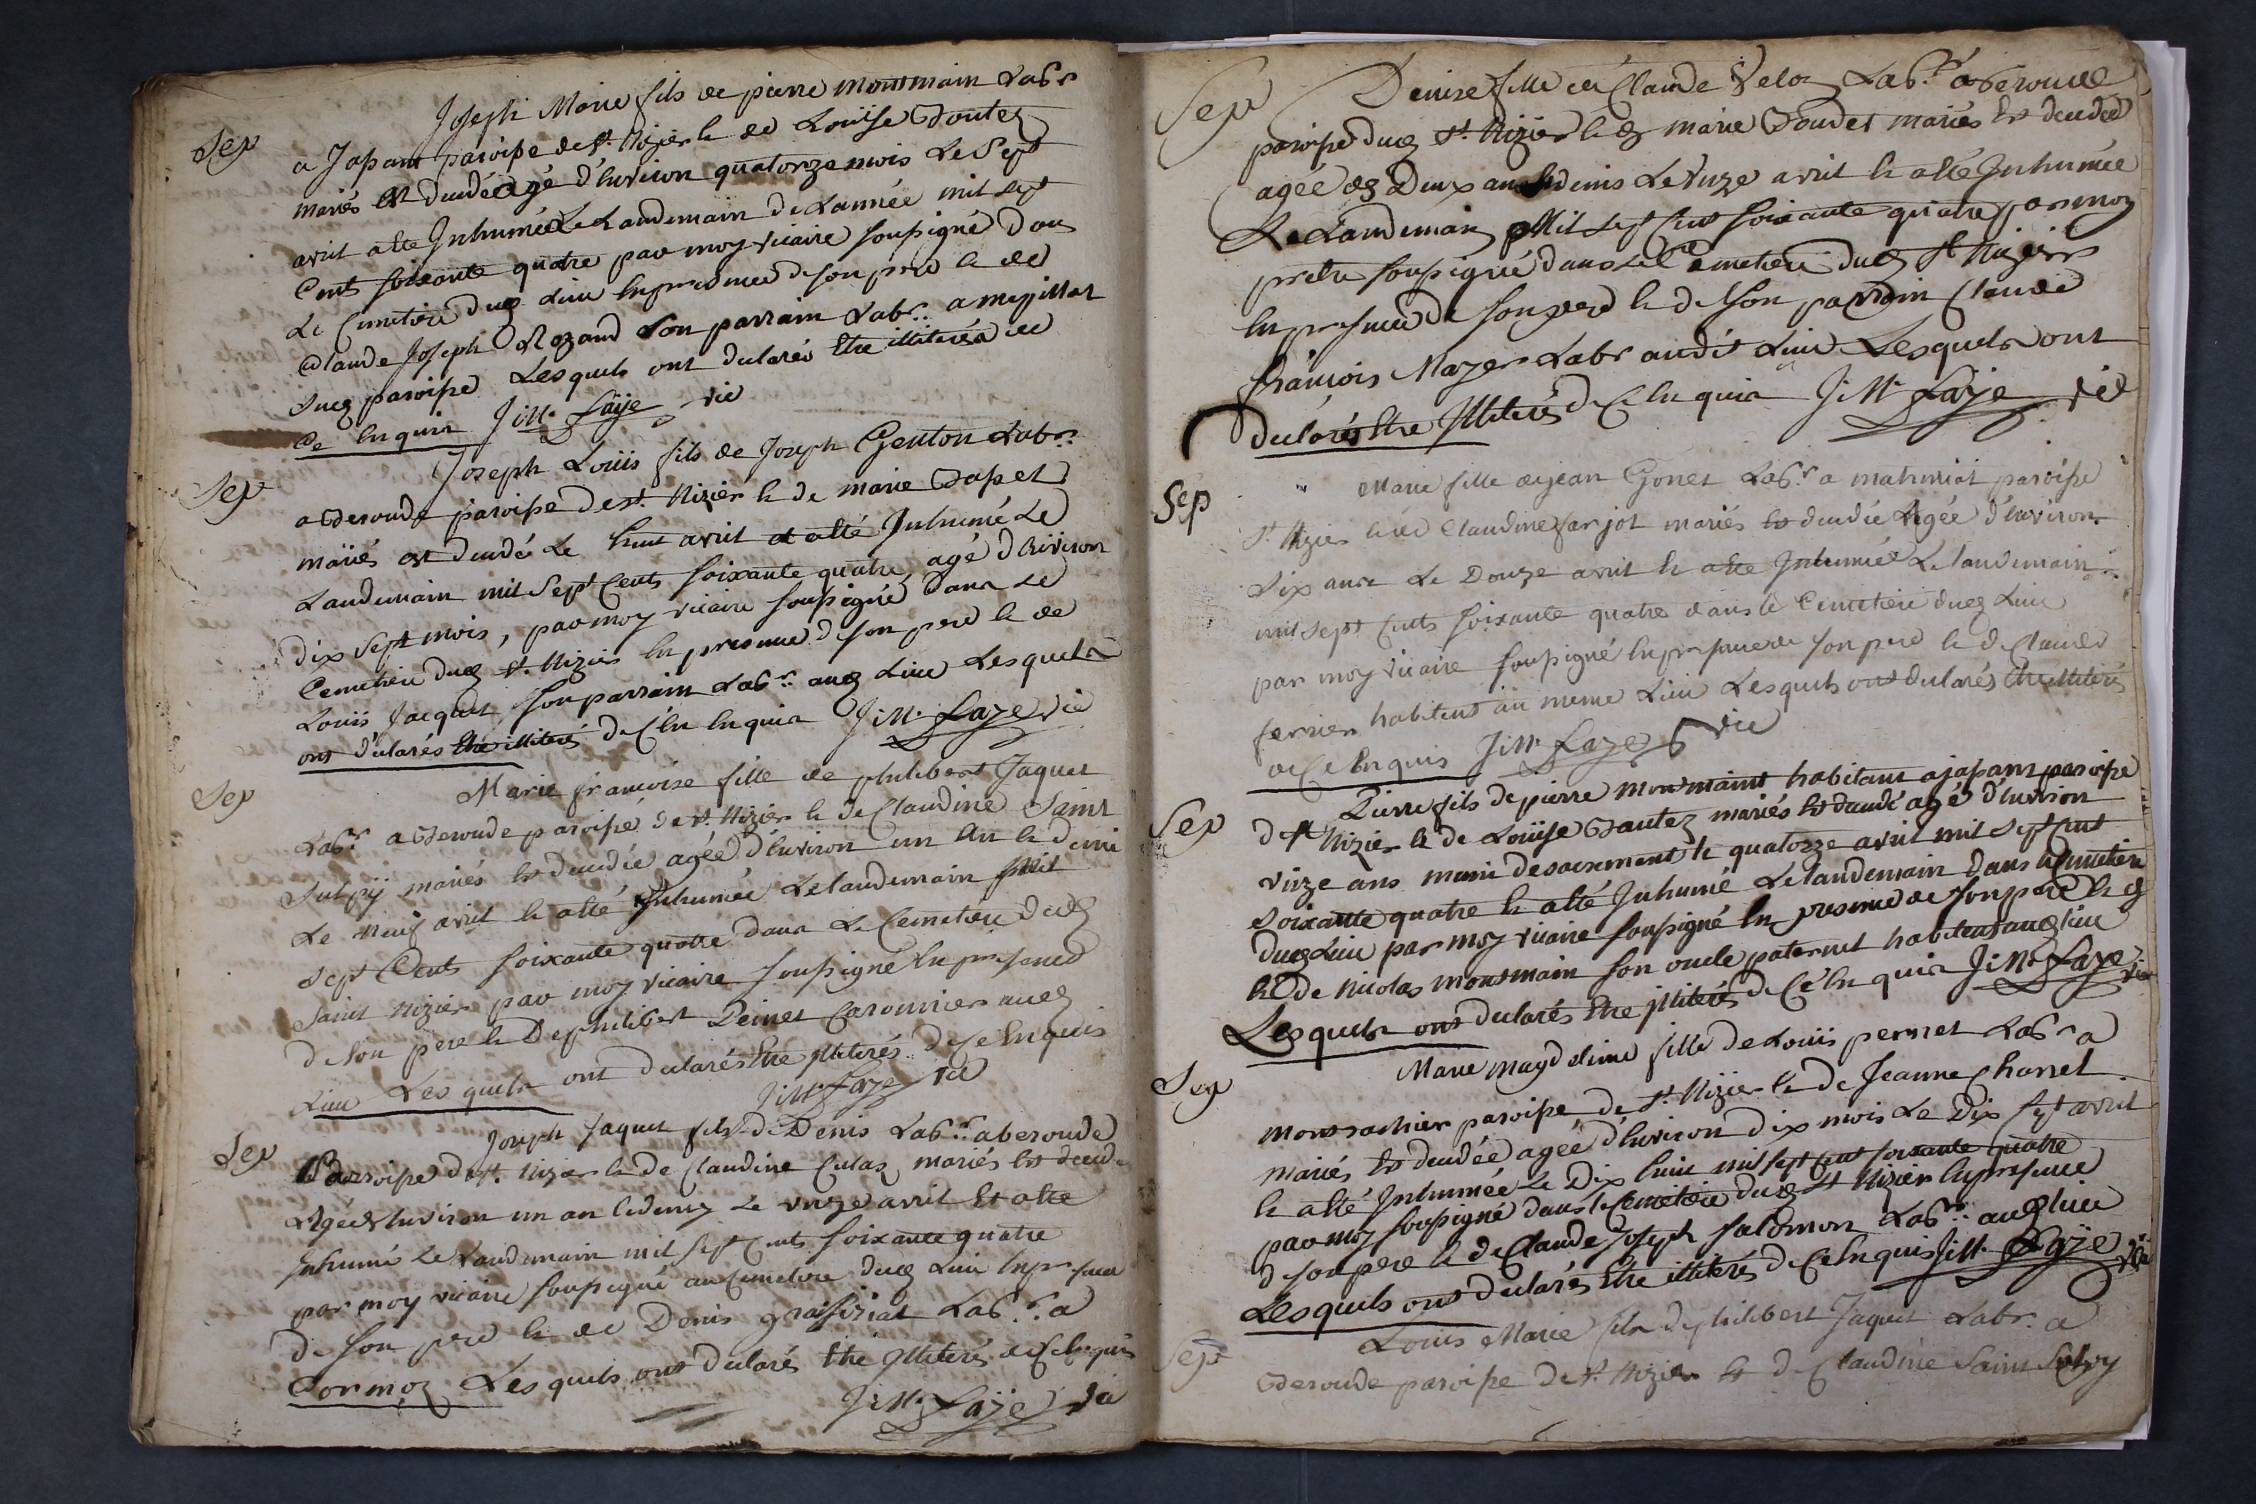 Joseph Marie fils de pierre montmain Labr
Sep
a Japam paroisse de St. Nizier & de Louïse
mariés est décédé agé d'Environ quatorze mois Le Sept
avril a été Inhumé Le Landemain de Lannée mil sept
Cents soixante quatre par moy vicaire soussigné dans
Le Cimetiere dud Lieu En presence de son pere & de
Claude Joseph Rozand son parrain Labr. a
dud paroisse Lesquels ont declarés Etre illiterés de
Ce Enquis J: M. Faÿe vic
Joseph Loüis fils de Joseph Genton Labr.
Sep
a Beroude paroisse de St. Nizier & de marie
mariés est decedé Le huit avril et a été Inhumé Le
Landemain mil Sept Cents soixante quatre agé d'Environ
dix sept mois, par moy vicaire soussigné dans Le
Cemetiere dud St. Nizier En presence de son pere & de
Loüis Jacquet son parrain Labr. aud Lieu Lesquels
ont declarés Etre illiterés de Ce Enquis J: M. Faye vic
Marie françoise fille de philibert Jaquet
Sep
Labr a Beroude paroisse de St. Nizier & de Claudine Saint
Sulpy mariés Est decedée agée d'Environ un An & demi
Le neuf avril & a été Inhumée Le landemain Mil
Sept Cents soixante quatre dans Le Cemetiere dud
Saint Nizier par moy vicaire soussigné En presence
de son pere & De philibert aud
Lieu Lesquels ont declarés Etre Illiterés de Ce Enquis
J: M. Faye vic
Joseph Jaquet fils de Denis Labr. a beroude
Sep
Parroisse de St. Nizier & de Claudine Culas mariés Est decede
Agé d'Environ un an & demy Le onze avril Et a été
Inhumé Le Landemain mil Sept Cents soixante quatre
par moy vicaire soussigné au Cemetiere dud Lieu En presence
de son pere & de Denis Labr. a
Cormoz Lesquels ont declarés Etre Illiterés de Ce Enquis
J: M. Faÿe vic
Sep
Denise fille de Claude Velon Labr. a Beroude
paroisse dud St. Nizier & de marie mariés Est decedée
agée de Deux ans & demis Le onze avril & a été Inhumée
Le Landemain Mil Sept Cent soixante quatre par moy
pretre soussigné dans Le Cemetiere dud St Nizier
En presence de son pere & de son parrain Claude
francois Mazer Labr audit Lieu Lesquels ont
declarés Etre Illiterés de Ce Enquis J: M. Faÿe vic
Marie fille de jean Gonet Labr. a paroisse
Sep
St. Nizier & de Claudine farjot mariés Est decedée Agée d'Environ
dix ans Le Douze avril & a été Inhumée Le landemain
mil Sept Cents soixante quatre dans le Cemetiere dud Lieu
par moy vicaire soussigné En presence de son pere & de Claude
ferrier habitent au meme Lieu Lesquels ont declarés Etre Illiterés
de Ce Enquis J: M. Faye vic
Pierre fils de pierre montmaint habitant a japam paroisse
Sep
de St Nizier & de Loüise mariés Est decedé agé d'Environ
onze ans muni de sacrement & quatorze avril mil sept cent
soixante quatre & a été Inhumé Le landemain Dans le Cemetiere
dud Lieu par moy vicaire soussigné En presence de son pere
& De Nicolas montmain son oncle paternel habitent aud lieu
Lesquels ont declarés Etre illiterés de Ce Enquis J: M. Faye vic
Marie magdeleine fille de Loüis pernet Labr a
Sep
paroisse de St. Nizier & de Jeanne Charret
mariés Est decedée agée d'Environ dix mois Le Dix Sept avril
& a été Inhumée Le Dix huit mil sept cent soixante quatre
par moy soussigné dans le Cemetiere dud St Nizier En presence
de son pere & de Claude Joseph Salomon Labr. aud Lieu
Lesquels ont declarés Etre illiterés de Ce Enquis J: M. Faÿe vic
Loüis Marie fils de philibert Jaquet Labr. a
Sep
Beroude paroisse De St. Nizier Et de Claudine Saint Sulpy